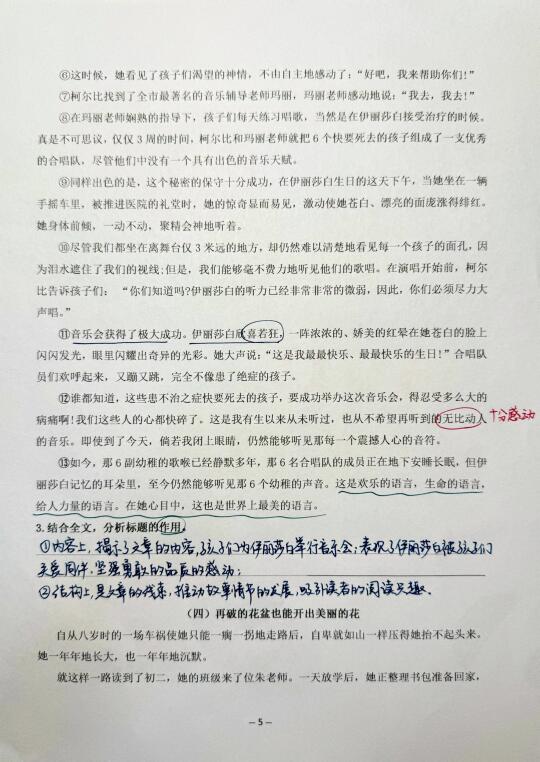 ⑥这时候，她看见了孩子们渴望的神情，不由自主地感动了：“好吧，我来帮助你们！”
⑦柯尔比找到了全市最著名的音乐辅导老师玛丽，玛丽老师感动地说：“我去，我去！”
⑧在玛丽老师娴熟的指导下，孩子们每天练习唱歌，当然是在伊丽莎白接受治疗的时候。
真是不可思议，仅仅 3 周的时间，柯尔比和玛丽老师就把 6 个快要死去的孩子组成了一支优秀
的合唱队，尽管他们中没有一个具有出色的音乐天赋。
⑨同样出色的是，这个秘密的保守十分成功，在伊丽莎白生日的这天下午，当她坐在一辆
手摇车里，被推进医院的礼堂时，她的惊奇显而易见，激动使她苍白、漂亮的面庞涨得绯红。
她身体前倾，一动不动，聚精会神地听着。
⑩尽管我们都坐在离舞台仅 3 米远的地方，却仍然难以清楚地看见每一个孩子的面孔，因
为泪水遮住了我们的视线；但是，我们能够毫不费力地听见他们的歌唱。在演唱开始前，柯尔
比告诉孩子们： “你们知道吗？伊丽莎白的听力已经非常非常的微弱，因此，你们必须尽力大
声唱。”
⑪音乐会获得了极大成功。伊丽莎白欣喜若狂，一阵浓浓的、娇美的红晕在她苍白的脸上
闪闪发光，眼里闪耀出奇异的光彩。她大声说：“这是我最最快乐、最最快乐的生日！”合唱队
员们欢呼起来，又蹦又跳，完全不像患了绝症的孩子。
⑫谁都知道，这些患不治之症快要死去的孩子，要成功举办这次音乐会，得忍受多么大的
病痛啊！我们这些人的心都快碎了。这是我有生以来从未听过，也从不希望再听到的无比动人
十分感动
的音乐。即使到了今天，倘若我闭上眼睛，仍然能够听见那每一个震撼人心的音符。
⑬如今，那 6 副幼稚的歌喉已经静默多年，那 6 名合唱队的成员正在地下安睡长眠，但伊
丽莎白记忆的耳朵里，至今仍然能够听见那 6 个幼稚的声音。这是欢乐的语言，生命的语言，
给人力量的语言。在她心目中，这也是世界上最美的语言。
3.结合全文，分析标题的作用。
①内容上，揭示了文章的内容，孩子们为伊丽莎白举行音乐会；表现了伊丽莎白被孩子们
关爱同伴，坚强勇敢的品质的感动；
②结构上，是文章的线索，推动故事情节的发展，吸引读者的阅读兴趣。
（四）再破的花盆也能开出美丽的花
自从八岁时的一场车祸使她只能一瘸一拐地走路后，自卑就如山一样压得她抬不起头来。
她一年年地长大，也一年年地沉默。
就这样一路读到了初二，她的班级来了位朱老师。一天放学后，她正整理书包准备回家，
— 5 —